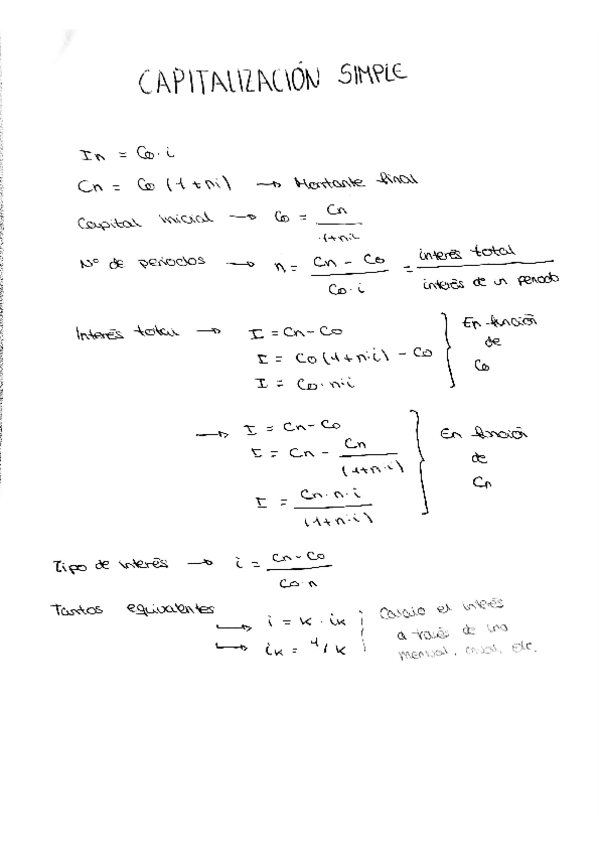 CAPITALIZACIÓN SIMPLE
In = Co · i
Cn = Co (1 + ni) → Montante final
Capital inicial → Co = Cn / 1+n·i
Nº de periodos → n = Cn - Co / Co · i = interés total / interés de un periodo
Interés total → I = Cn - Co
I = Co (1 + n·i) - Co
I = Co · n · i
En función de Co
→ I = Cn - Co
I = Cn - Cn / (1+n·i)
I = Cn · n · i / (1+n·i)
En función de Cn
Tipo de interés → i = Cn - Co / Co · n
Tantos equivalentes
→ i = k · ik ; Calculo el interés
→ ik = i/k ; a través de uno
mensual, anual, etc.